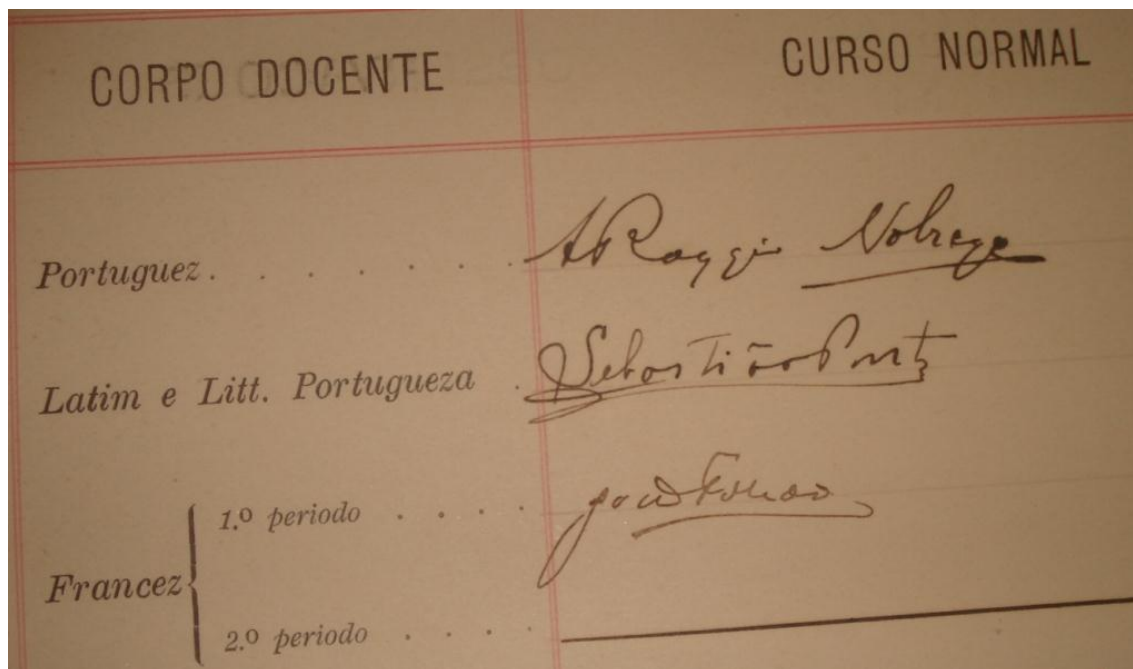 CORPO DOCENTE CURSO NORMAL
Portuguez. . . . . . . A Raggio Nobrega
Latim e Litt. Portugueza . Sebastião Pontes
Francez
1.º periodo . . . .
2.º periodo . . . .